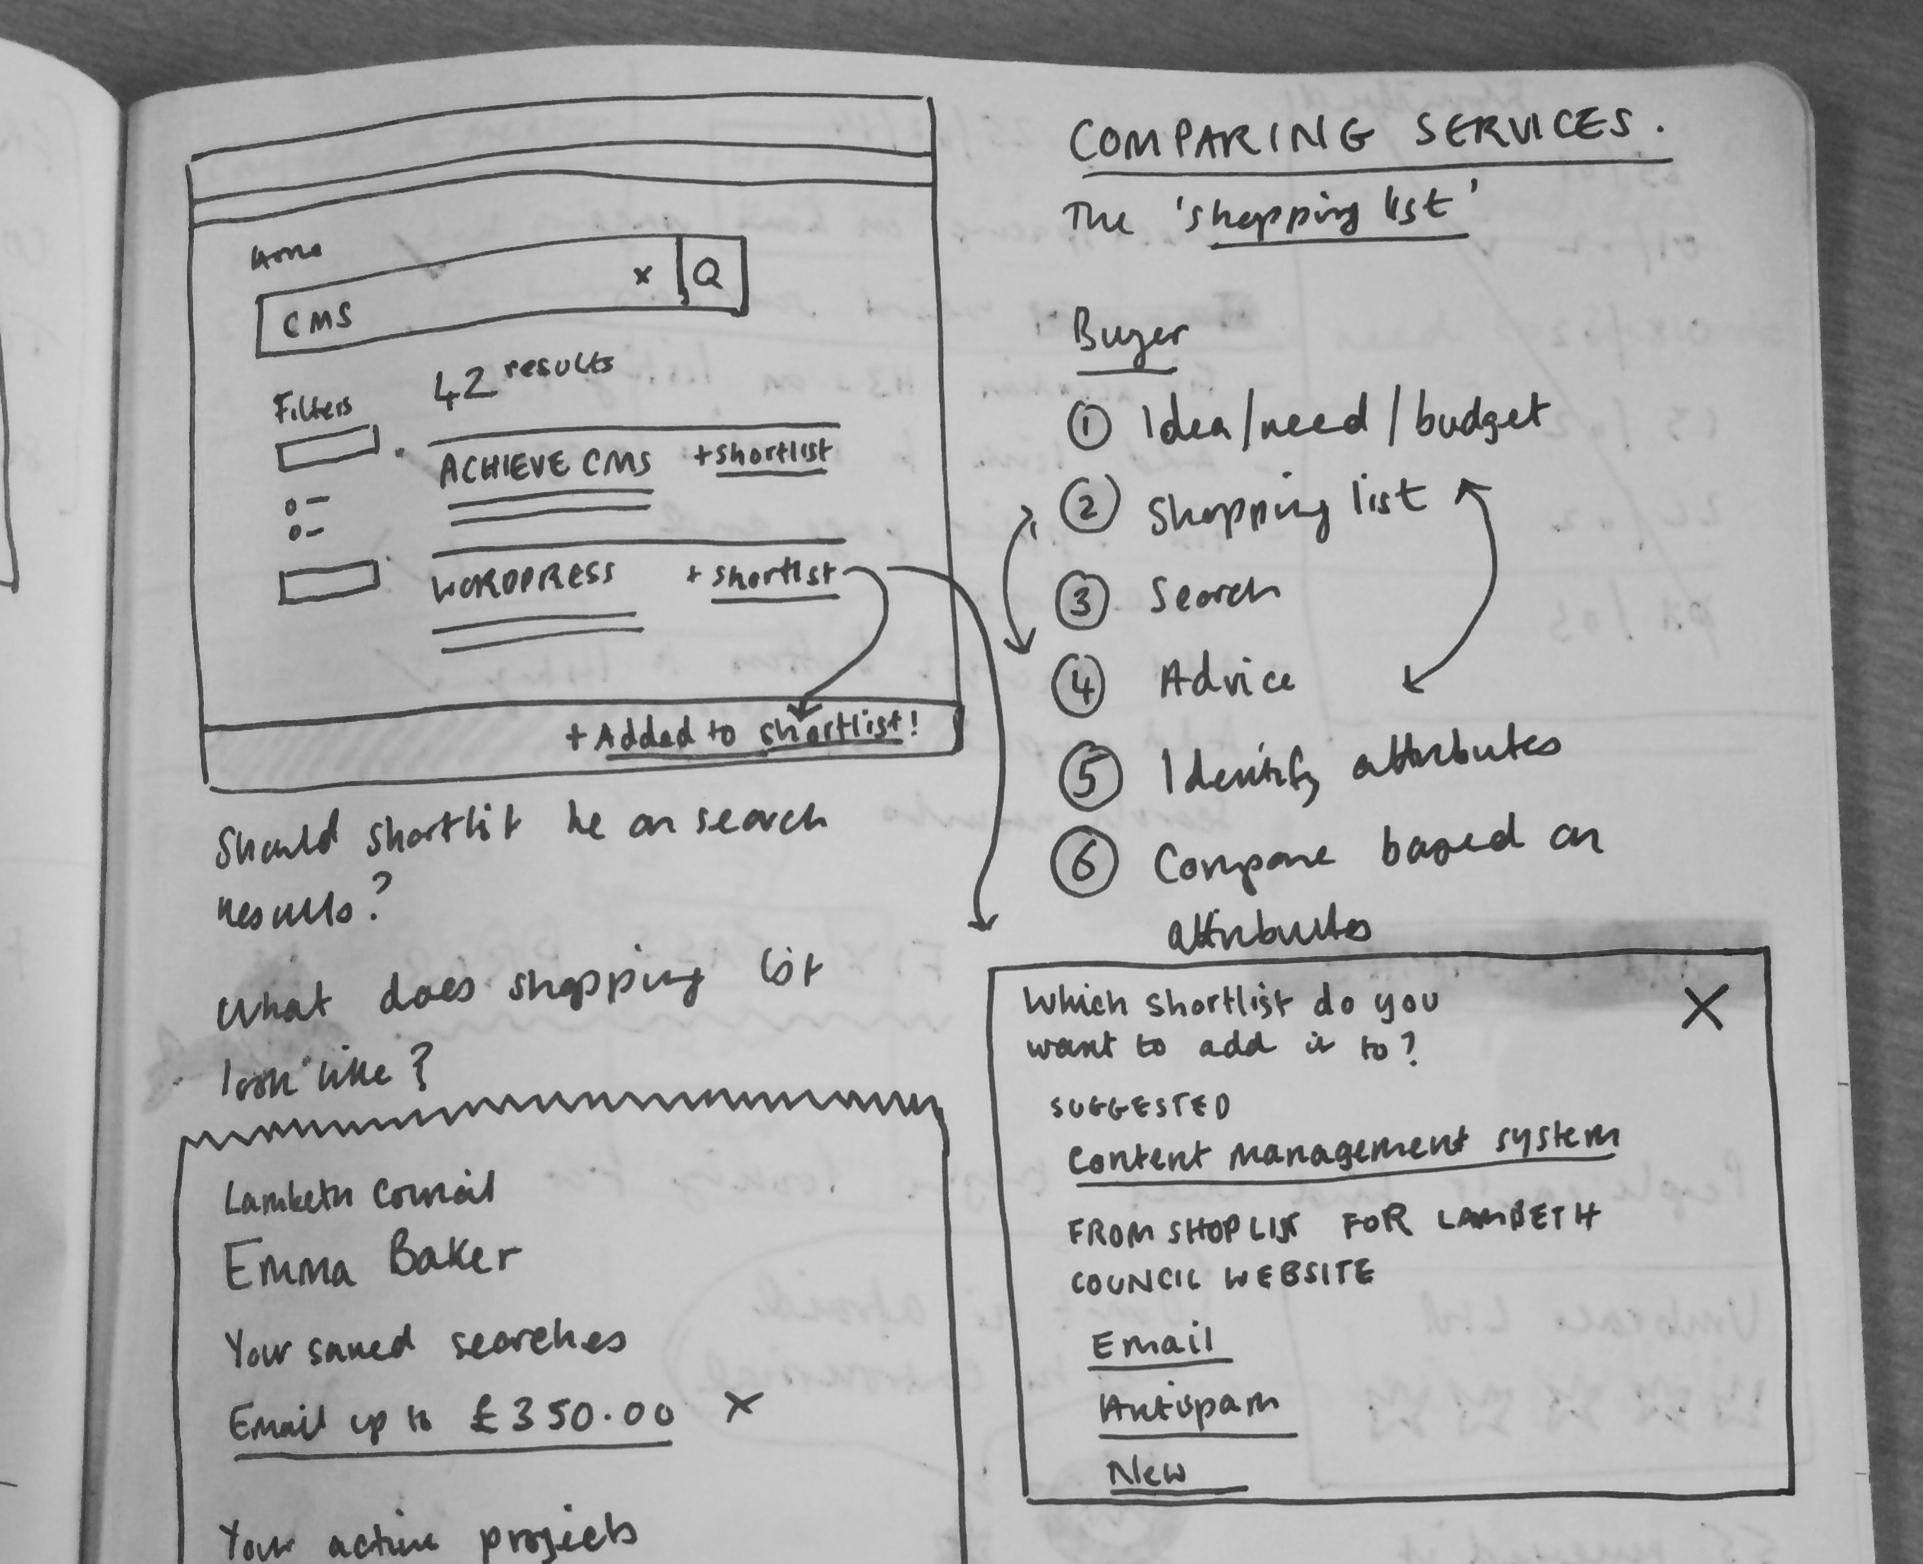 Home
CMS x Q
Filters
42 results
ACHIEVE CMS + shortlist
WORDPRESS + shortlist
+ Added to shortlist!
Should shortlist be on search
results?
What does shopping list
look like?
Lambeth Council
Emma Baker
Your saved searches
Email up to £350.00 x
Your active projects
COMPARING SERVICES.
The 'shopping list'
Buyer
1 Idea/need/budget
2 Shopping list
3 Search
4 Advice
5 Identify attributes
6 Compare based on
attributes
Which shortlist do you X
want to add it to?
SUGGESTED
Content management system
FROM SHOPLIST FOR LAMBETH
COUNCIL WEBSITE
Email
Antispam
New